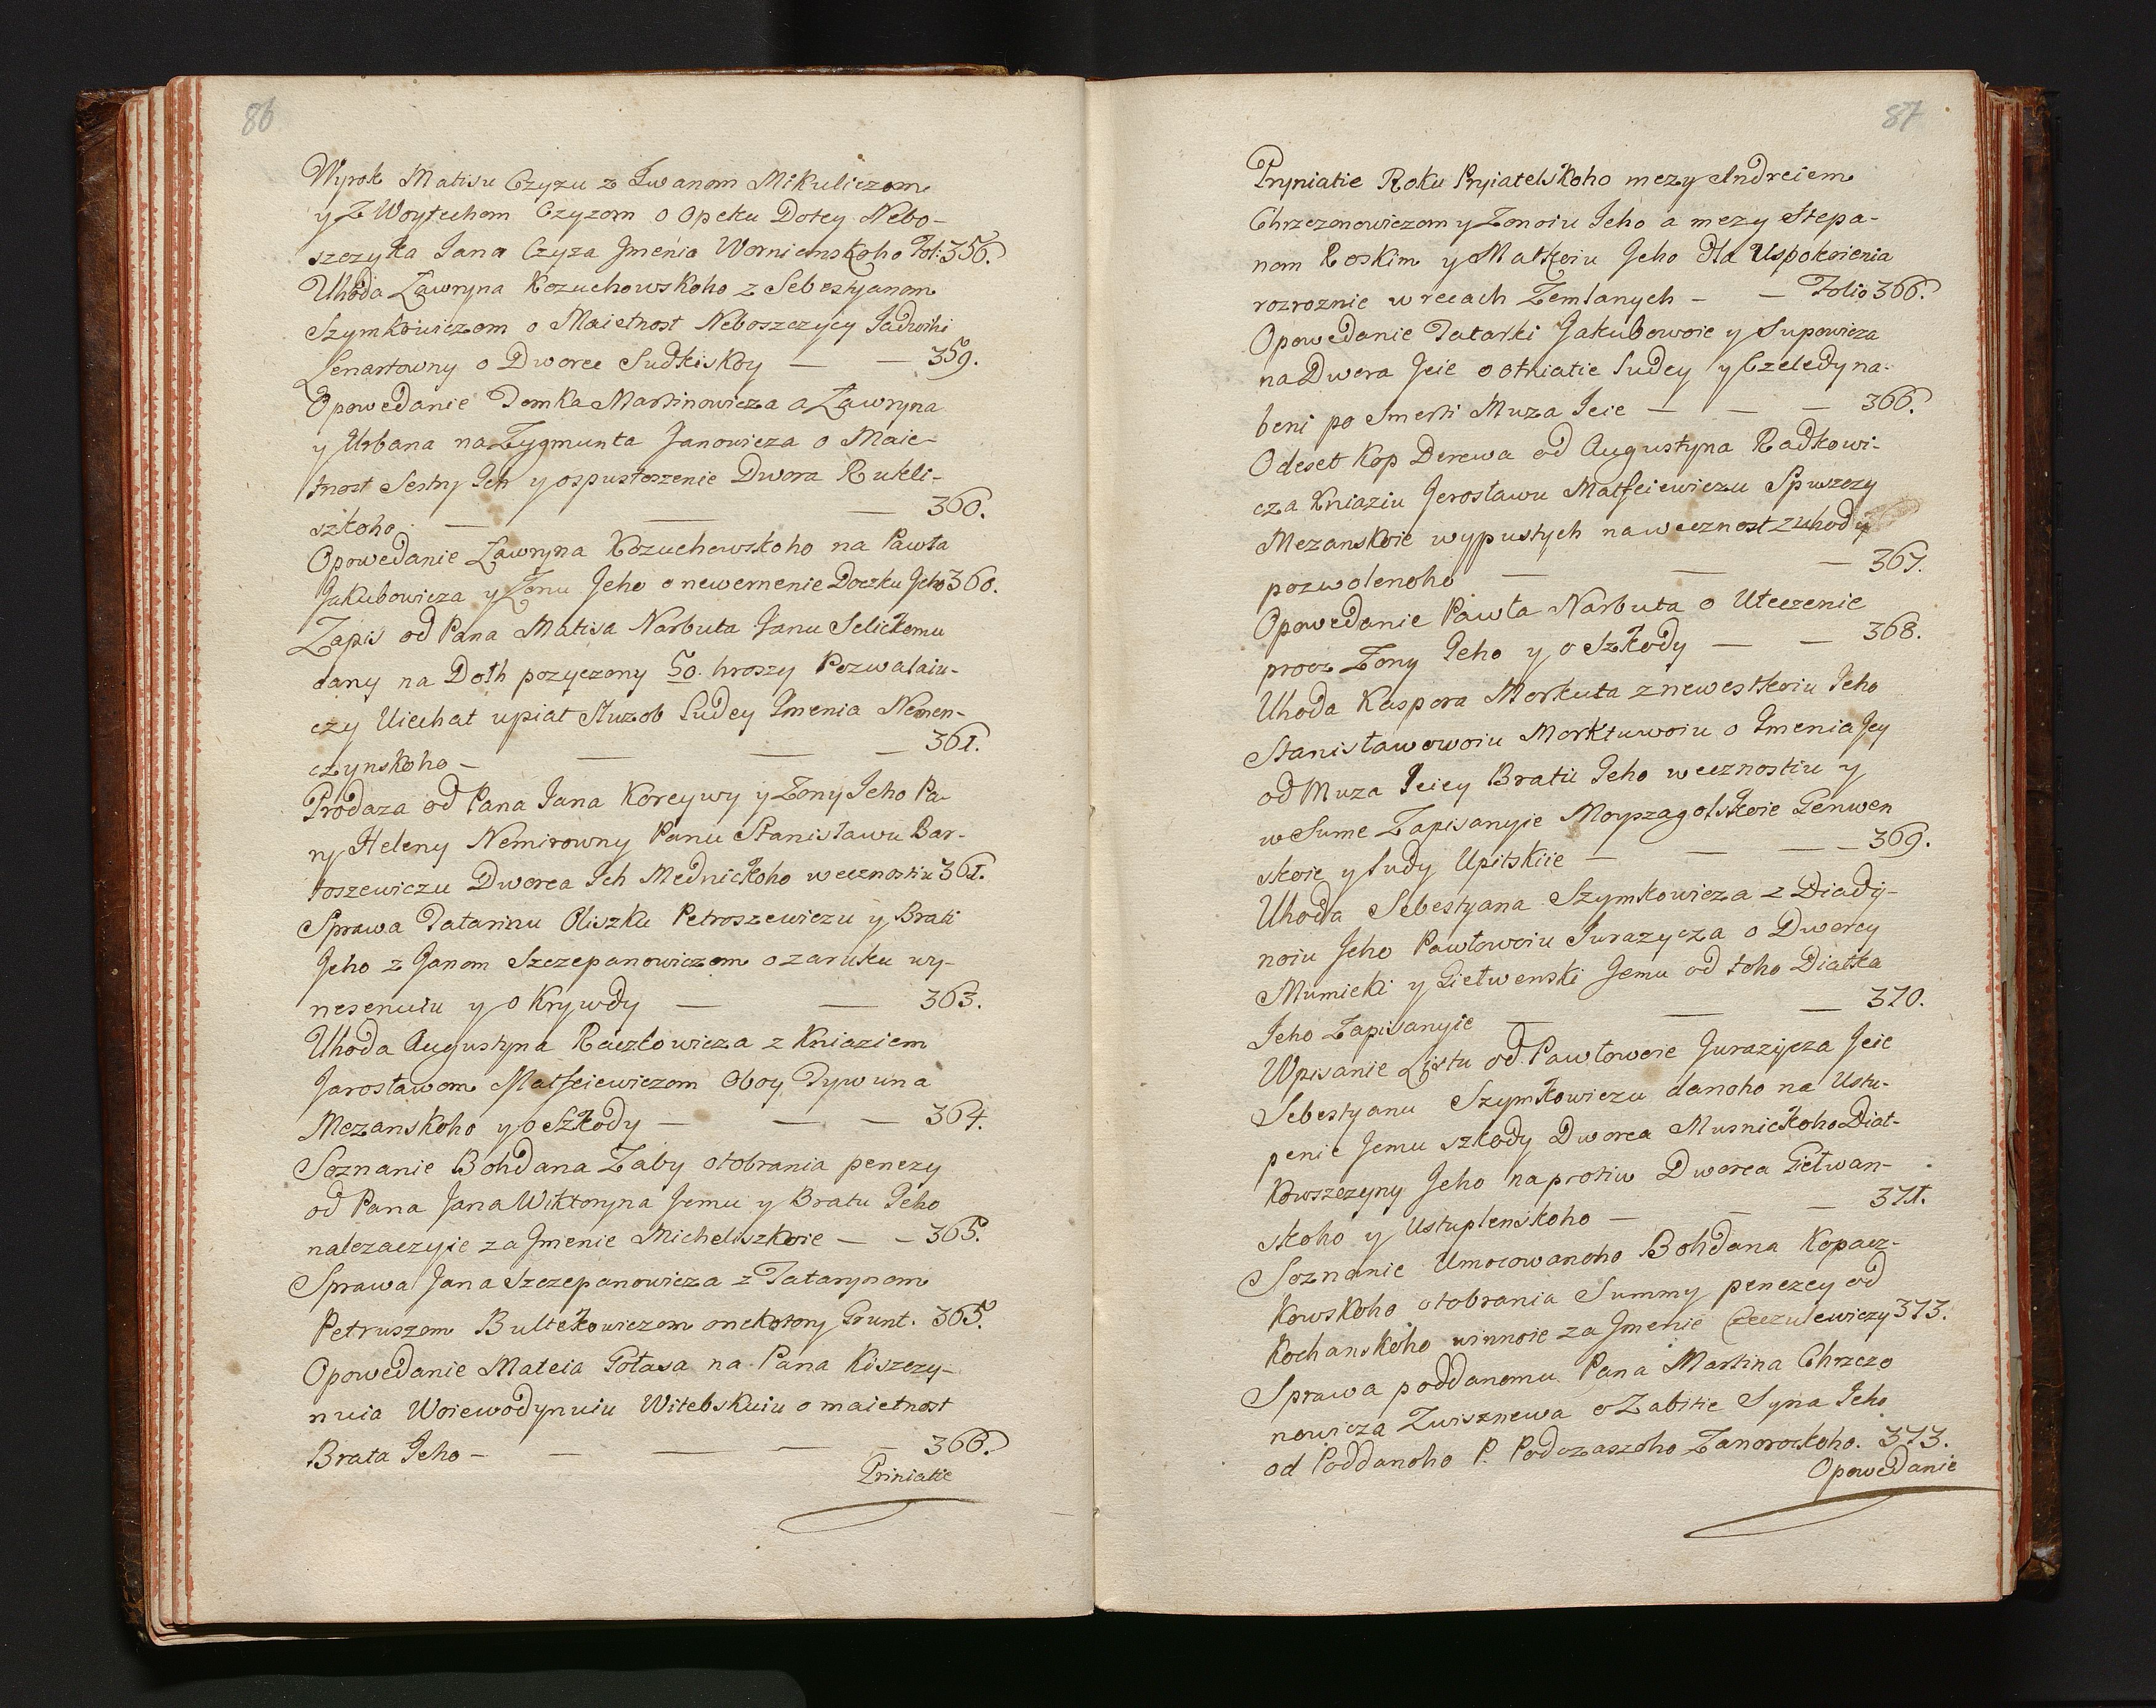 86
Wyrok Matisu Czyzu z Iwanom Mikuliczom
y Z Woytechom Czyzom o Opeku Dotey Nebo-
szczyka Jana Czyza Jmenia Wornianskoho Fol: 356.
Uhoda Ławryna Kozuchowskoho z Sebestyanom
Szymkowiczom o Maietnost Neboszczycy Jadwihi
Lenartowny o Dworec Sudkiskoy — — 359.
Opowedanie Domka Martinowicza a Ławryna
y Urbana na Zygmunta Janowicza o Maie-
tnost Sestry Ich y ospustoszenie Dwora Rukli-
szkoho. — — — 360.
Opowedanie Ławryna Kozuchowskoho na Pawła
Jakubowicza y Zonu Jeho o newernenie Doczku Jeho 360.
Zapis od Pana Matisa Narbuta Janu Selickemu
dany na Dolh pozyczony 50. hroszy Pozwalaiu-
czy Uiechat upiat Sluzob Ludey Jmenia Nemen-
czynskoho — — — — 361.
Prodaza od Pana Jana Koreywy y Zony Jeho Pa-
ny Heleny Nemirowny Panu Stanisławu Bar-
toszewiczu Dworca Ich Mednickoho wecznostiu 361.
Sprawa Tatarinu Oliszku Petroszewiczu y Brati
Jeho z Janom Szczepanowiczom o zaruku wy-
nesenuiu y o Krywdy — — 363.
Uhoda Augustyna Raczkowicza z Kniaziem
Jarosławom Matfeiewiczom Oboy Tywuna
Mezanskoho y o Szkody — — — 364.
Soznanie Bohdana Zaby otobrania penezy
od Pana Jana Wiktoryna Jemu y Bratu Jeho
nalezaczyie za Jmenie Micheliszkoie — — 365.
Sprawa Jana Szczepanowicza z Tatarynom
Petruszom Bultekowiczom onekotory Grunt. 365.
Opowedanie Mateia Gołasa na Pana Kiszczy-
nuia Woiewodynuiu Witebskuiu o maietnost
Brata Jeho — — — — — 366.
Priniatie
87
Pryniatie Roku Pryiatelskoho mezy Andreiem
Chrzczonowiczom y Zonoiu Jeho a mezy Stepa-
nom Roskim y Matkoiu Jeho Dla Uspokoienia
rozroznic w recach Zemlanych — — Folio 366.
Opowedanie Tatarki Jakubowoie y Supowicza
na Dwora Jeie o otniatie Ludey y Czeledy na-
beni po Smerti Muza Jeie — — — 366.
O deset Kop Derewa od Augustyna Radkowi-
cza Kniaziu Jerosławu Matfeiewiczu Spuszczy
Mezanskoie wypustych na wecznost z uhody
pozwolenoho — — — 367.
Opowedanie Pawła Narbuta o Uteczenie
procz Zony Jeho y o Szkody — — 368.
Uhoda Kaspora Morkuta z newestkoiu Jeho
Stanisławowoiu Morktuwoiu o Jmenia Jey
od Muza Jeiey Bratii Jeho wecznostiu y
w Sume Zapisanyie Moyzagolskoie Genwen
skoie y ludy Upitskiie — — — — 369.
Uhoda Sebestyana Szymkowicza z Diady-
noiu Jeho Pawłowoiu Jurazycza o Dworcy
Mumicki y Gietwenski Jemu od toho Diatka
Jeho Zapisanyie — — — 370.
Wpisanie Listu od Pawłowoie Jurazycza Jeie
Sebestyanu Szymkowiczu danoho na Ustu-
penie Jemu szkody Dworca Musnickoho Diat-
kowszczyny Jeho naprotiw Dworca Gietwan-
skoho y Ustuplenskoho — — — 371.
Soznanie Umocowanoho Bohdana Kopacz-
kowskoho otobrania Summy penezey od
Kochanskoho winnoie za Jmenie Czeczulewiczy 373.
Sprawa poddanomu Pana Martina Chrzczo
nowicza Zwisznewa o Zabitie Syna Jeho
od Poddanoho P. Podczaszoho Zanorockoho. 373.
Opowedanie